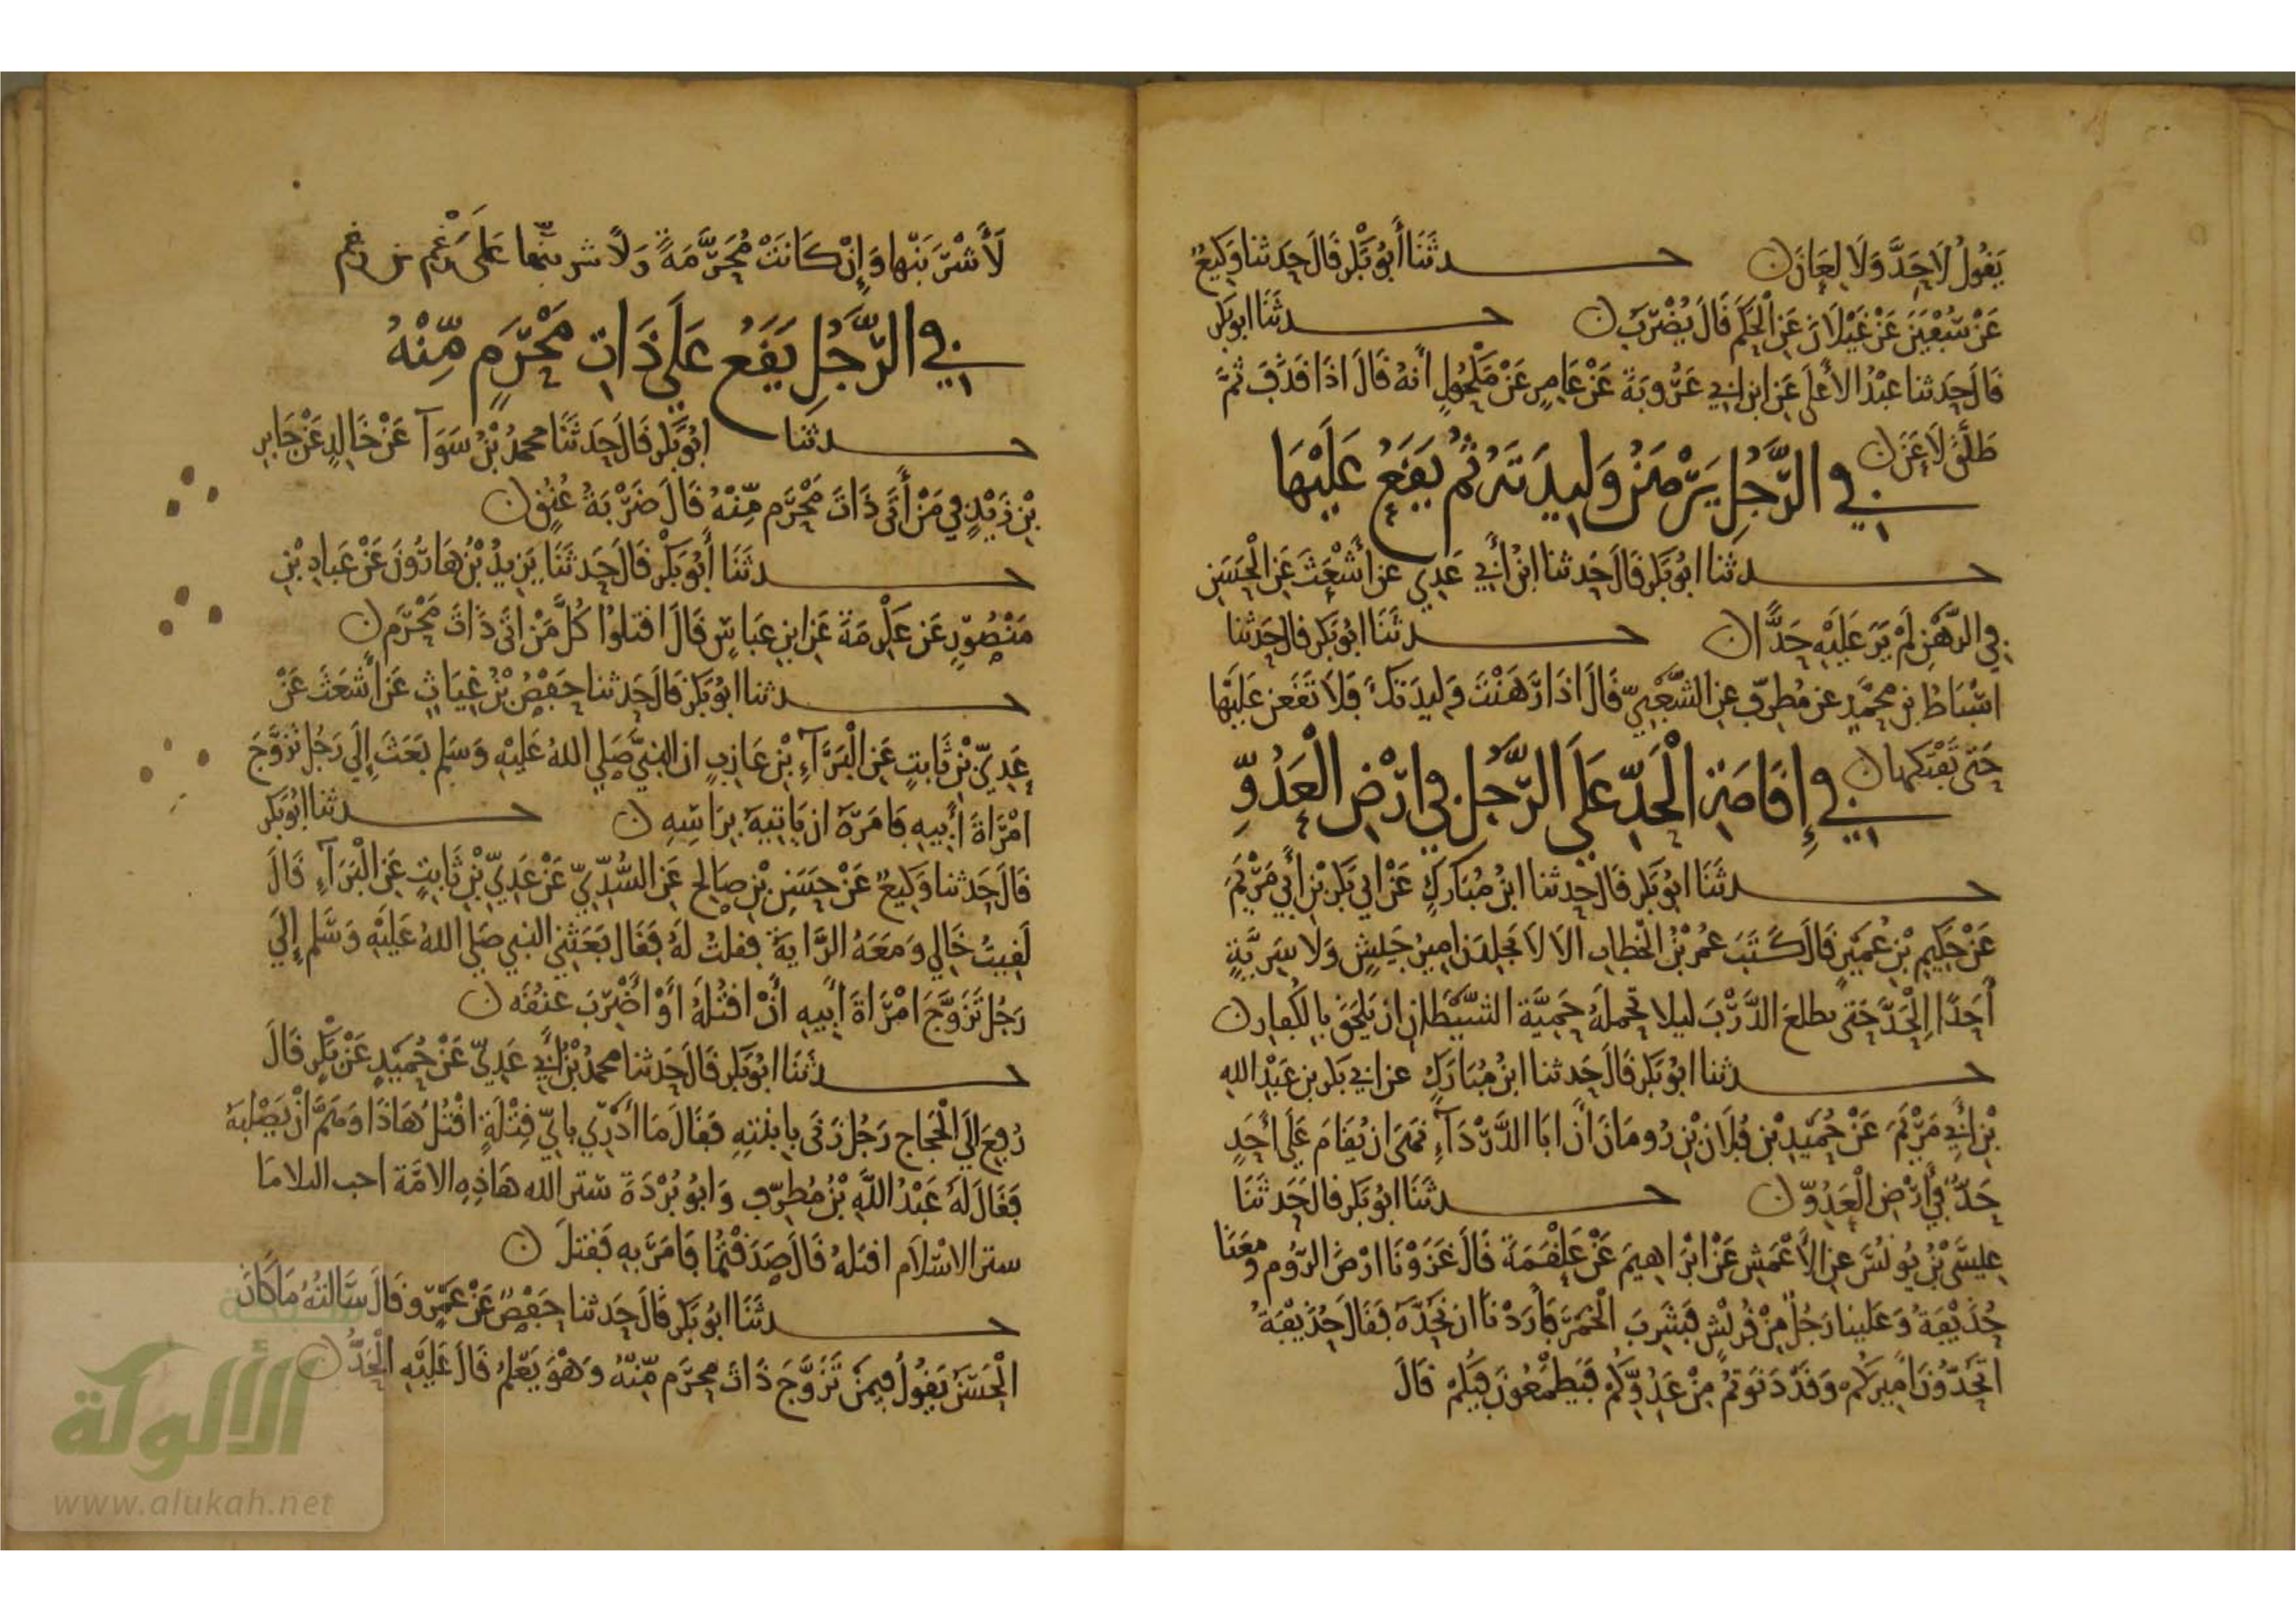 يَقُولُ لَا حَدَّ وَلَا لِعَانَ ن حــدثَنَا أَبُو بَكْرٍ قَالَ حَدثنا وَكِيعٌ
عَنْ سُفْيَنَ عَنْ غَيْلَانَ عَنِ الْحَكَمِ قَالَ يُضْرَبُ ن حــدثَنَا ابو بَكْرٍ
قَالَ حَدثنا عَبْدُ الأَعْلَى عَنِ ابنِ ابِي عَرُوبَةَ عَنْ عَامِرٍ عَنْ مَكْحُولٍ أنهُ قَالَ اذَا قَذَفَ ثُمَّ
طَلَّقَ لَاعَنَ ن
فِي الرَّجُلِ يَرْهَنُ وَلِيدَتَهُ ثُمَّ يَقَعُ عَلَيْهَا
حــدثنا ابُو بَكْرٍ قَالَ حَدثنا ابنُ أَبِي عَدِي عن أَشْعَثَ عَنِ الْحَسَنِ
فِي الرَّهْنِ لَمْ يَرَ عَلَيْهِ حَدًّا ن حــدثَنَا ابُو بَكْرٍ قال حَدثنا
اسْبَاطُ بن مُحَمَّدٍ عن مُطرِّفٍ عن الشَّعْبِيِّ قَالَ اذَا رَهَنْتَ وَلِيدَتَكَ فَلَا تَقَعن عَلَيْها
حَتى تَفْتَكهَا ن
فِي إِقَامَةِ الْحَدِّ عَلَى الرَّجُلِ فِي ارْضِ الْعَدُوِّ
حــدثَنَا ابُو بَكْرٍ قَالَ حدثنا ابنُ مُبَارَكٍ عَنْ ابي بَكْرِ بْنِ أَبِي مَرْيَمَ
عَنْ حَكِيمِ بْنِ عُمَيْرٍ قَالَ كَتَبَ عُمَرُ بْنُ الْخطابِ الا لَا يَجلِدَنَّ امِيرُ جَيْشٍ وَلَا سَرِيَّةٍ
أَحَدًا الْحَدَّ حَتى يطلعَ الدَّرْبَ ليلا تَحملَهُ حَمِيَّة الشَّيْطَانِ ان يَلْحَقَ بِالكُفارِ ن
حــدثنا ابُو بَكْرٍ قَالَ حَدثنا ابنُ مُبَارَكٍ عن ابي بَكْرِ بن عَبْدِ الله
بْنِ أَبِي مَرْيَمَ عَنْ حُمَيْدِ بْنِ فُلَانِ بْنِ رُومَانَ أَنَّ ابَا الدَّرْدَآءِ نَهَى ان يُقَامَ عَلَى أَحَدٍ
حَدٌّ فِي أَرْضِ الْعَدُوِّ ن حــدثَنَا ابُو بَكْرٍ قال حَدثَنَا
عِيسَى بْنُ يُونُسَ عنِ الأَعْمَشِ عَنْ ابْرَاهِيمَ عَنْ عَلْقَمَةَ قَالَ غَزَوْنَا ارْضَ الرُّومِ وَمعَنَا
حُذَيْفَةُ وَعَلينا رَجُلٌ مِنْ قُرَيْشٍ فَشَرِبَ الْخَمْرَ فَأَرَدْنَا ان نَحُدَّهُ فَقَالَ حُذَيْفَةُ
اتَحُدُّونَ امِيرَكُمْ وَقَدْ دَنَوتمْ مِنْ عَدُوِّكُمْ فَيَطْمَعُونَ فِيكُمْ قَالَ
لَأَشْرَبَنّها وَإِنْ كَانَتْ مُحَرَّمَةً وَلَأشربنّها عَلَى رَغْمِ من رغم
فِي الرَّجُلِ يَقَعُ عَلَى ذَاتِ مَحْرَمٍ مِّنْهُ
حــدثَنَا ابُو بَكْرٍ قَالَ حَدثَنَا محمدُ بْنُ سَوَآ عَنْ خَالِدٍ عَنْ جَابِرِ
بْنِ زَيْدٍ فِي مَنْ أَتَى ذَاتَ مَحْرَمٍ مِّنْهُ قَالَ ضَرْبَةُ عُنُقٍ ن
حــدثَنَا أَبُو بَكْرٍ قَالَ حَدثَنَا يَزِيدُ بْنُ هَارُونَ عَنْ عَبادِ بْنِ
مَنْصُورٍ عَن عِكْرِمَةَ عَنِ ابنِ عَبَاسٍ قَالَ اقتلوُا كُلَّ مَنْ اتَى ذَاتَ مَحْرَمٍ ن
حــدثنا ابُو بَكْرٍ قَالَ حَدثنا حَفْصُ بْنُ غِيَاثٍ عَنْ أَشْعَثَ عَنْ
عَدِيِّ بْنِ ثَابتٍ عَنِ الْبَرَآءِ بْنِ عَازِبٍ ان النبيَّ صَلى اللهُ عَلَيْهِ وَسَلم بَعَثَ إِلَى رَجُلٍ تزَوَّجَ
امْرَاةَ أَبِيهِ فَامَرَهُ ان يَاتيهُ بِرَاسِهِ ن حــدثنا ابُو بَكْرٍ
قَالَ حَدثنا وَكِيعٌ عَنْ حَسَنِ بْنِ صَالحٍ عَنِ السُّدِّيِّ عَنْ عَدِيِّ بْنِ ثَابِتٍ عَنِ الْبَرَآءِ قَالَ
لَقِيتُ خَالِي وَمَعَهُ الرَّايَةُ فقلتُ لَهُ فَقَالَ بَعَثَنِي النبي صَلى اللهُ عَلَيْهِ وَسَّلم إِلَى
رَجُلٍ تَزَوَّجَ امْرَاةَ ابِيهِ أَنْ اقْتُلَهُ أَوْ أَضْرِبَ عنُقَه ن
حــدثَنَا ابُو بَكْرٍ قَالَ حَدثنا محمدُ بْنُ أَبِي عَدِيٍّ عَنْ حُمَيْدٍ عَنْ بَكْرٍ قَالَ
رُفِعَ الَى الْحَجاجِ رَجُلٌ زَنَى بِابنتِهِ فَقَالَ مَا أَدْرِي بِايِّ قِتْلَةٍ اقْتُلُ هَاذَا وَهَمَّ انْ يَصْلِبَهُ
فَقَالَ لَهُ عَبْدُ اللَّهِ بْنُ مُطرِّفٍ وَابُو بُرْدَةَ ستر الله هَاذِهِ الامَّة احب البلا مَا
ستر الاسْلَام اقتلهُ قَالَ صَدَقْتُمَا فَامَرَ بِهِ فَقتلَ ن
حــدثَنَا ابُو بَكْرٍ قَالَ حَدثنا حَفْصٌ عَنْ عَمْرٍو قَالَ سَالتُهُ مَا كَانَ
الْحَسَنُ يَقُولُ فِيمَنْ تَزَوَّجَ ذَاتَ محرَمٍ مِّنْهُ وَهْوَ يَعْلمُ قَالَ عَلَيْهِ الْحَدُّ ن
شبكة
الألوكة
www.alukah.net